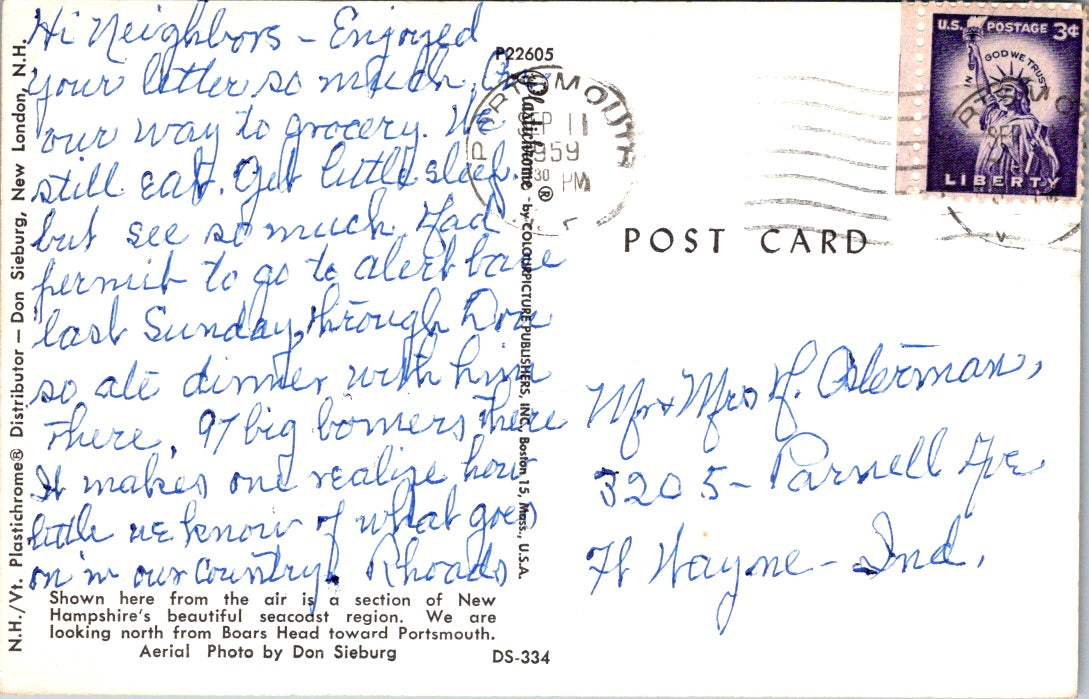 Hi Neighbors – Enjoyed
your letter so much. On
our way to grocery. We
still eat. Get little sleep.
but see so much. Had
permit to go to alert base
last Sunday, through Don
so ate dinner with him
There, 97 big bomers there
It makes one realize how
little we know of what goes
on in our country. Rhoads
Shown here from the air is a section of New
Hampshire's beautiful seacoast region. We are
looking north from Boars Head toward Portsmouth.
Aerial Photo by Don Sieburg
DS-334
N.H./Vt. Plastichrome® Distributor — Don Sieburg, New London, N.H.
P22605
Plastichrome ® by COLOURPICTURE PUBLISHERS, INC., Boston 15, Mass., U.S.A.
SEP 11
1959
30 PM
POST CARD
U.S. POSTAGE 3¢
IN GOD WE TRUST
LIBERTY
Mr & Mrs H. Osterman,
3205 – Parnell Ave
Ft Wayne – Ind.